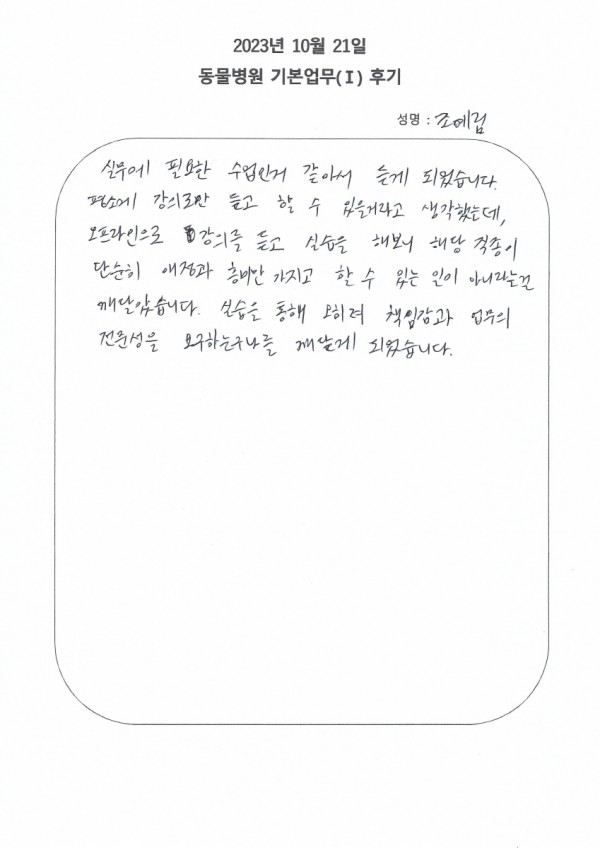 2023년 10월 21일
동물병원 기본업무(Ⅰ) 후기
성명 : 조예림
실무에 필요한 수업인거 같아서 듣게 되었습니다.
평소에 강의로만 듣고 할 수 있을거라고 생각했는데,
오프라인으로 강의를 듣고 실습을 해보니 해당 직종이
단순히 애정과 흥미만 가지고 할 수 있는 일이 아니라는걸
깨달았습니다. 실습을 통해 오히려 책임감과 업무의
전문성을 요구하는구나를 깨닫게 되었습니다.